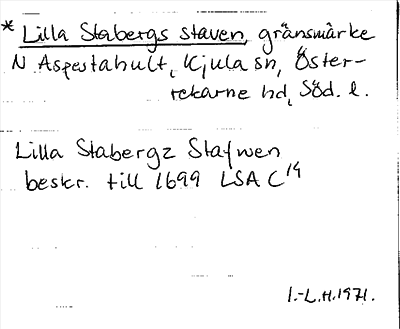 * Lilla Stabergs staven, gränsmärke
N Aspestahult, Kjula sn, Öster-
rekarne hd, Söd. l.
Lilla Stabergz Stafwen
beskr. till 1699 LSA C¹⁴
I.-L.H.1971.